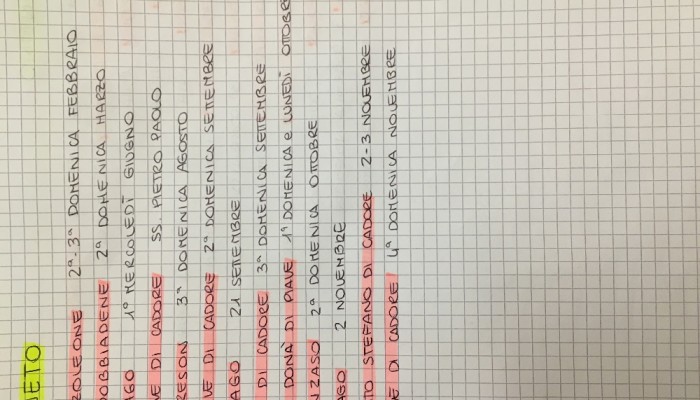 NETO
ZOLEONE 2ª-3ª DOMENICA FEBBRAIO
DOBBIADENE 2ª DOMENICA MARZO
AGO 1º MERCOLEDÌ GIUGNO
VE DI CADORE SS. PIETRO PAOLO
RESON 3ª DOMENICA AGOSTO
VE DI CADORE 2ª DOMENICA SETTEMBRE
AGO 21 SETTEMBRE
DI CADORE 3ª DOMENICA SETTEMBRE
DONÀ DI PIAVE 1ª DOMENICA e LUNEDÌ OTTOBR
ZASO 2ª DOMENICA OTTOBRE
AGO 2 NOVEMBRE
TO STEFANO DI CADORE 2-3 NOVEMBRE
E DI CADORE 4ª DOMENICA NOVEMBRE